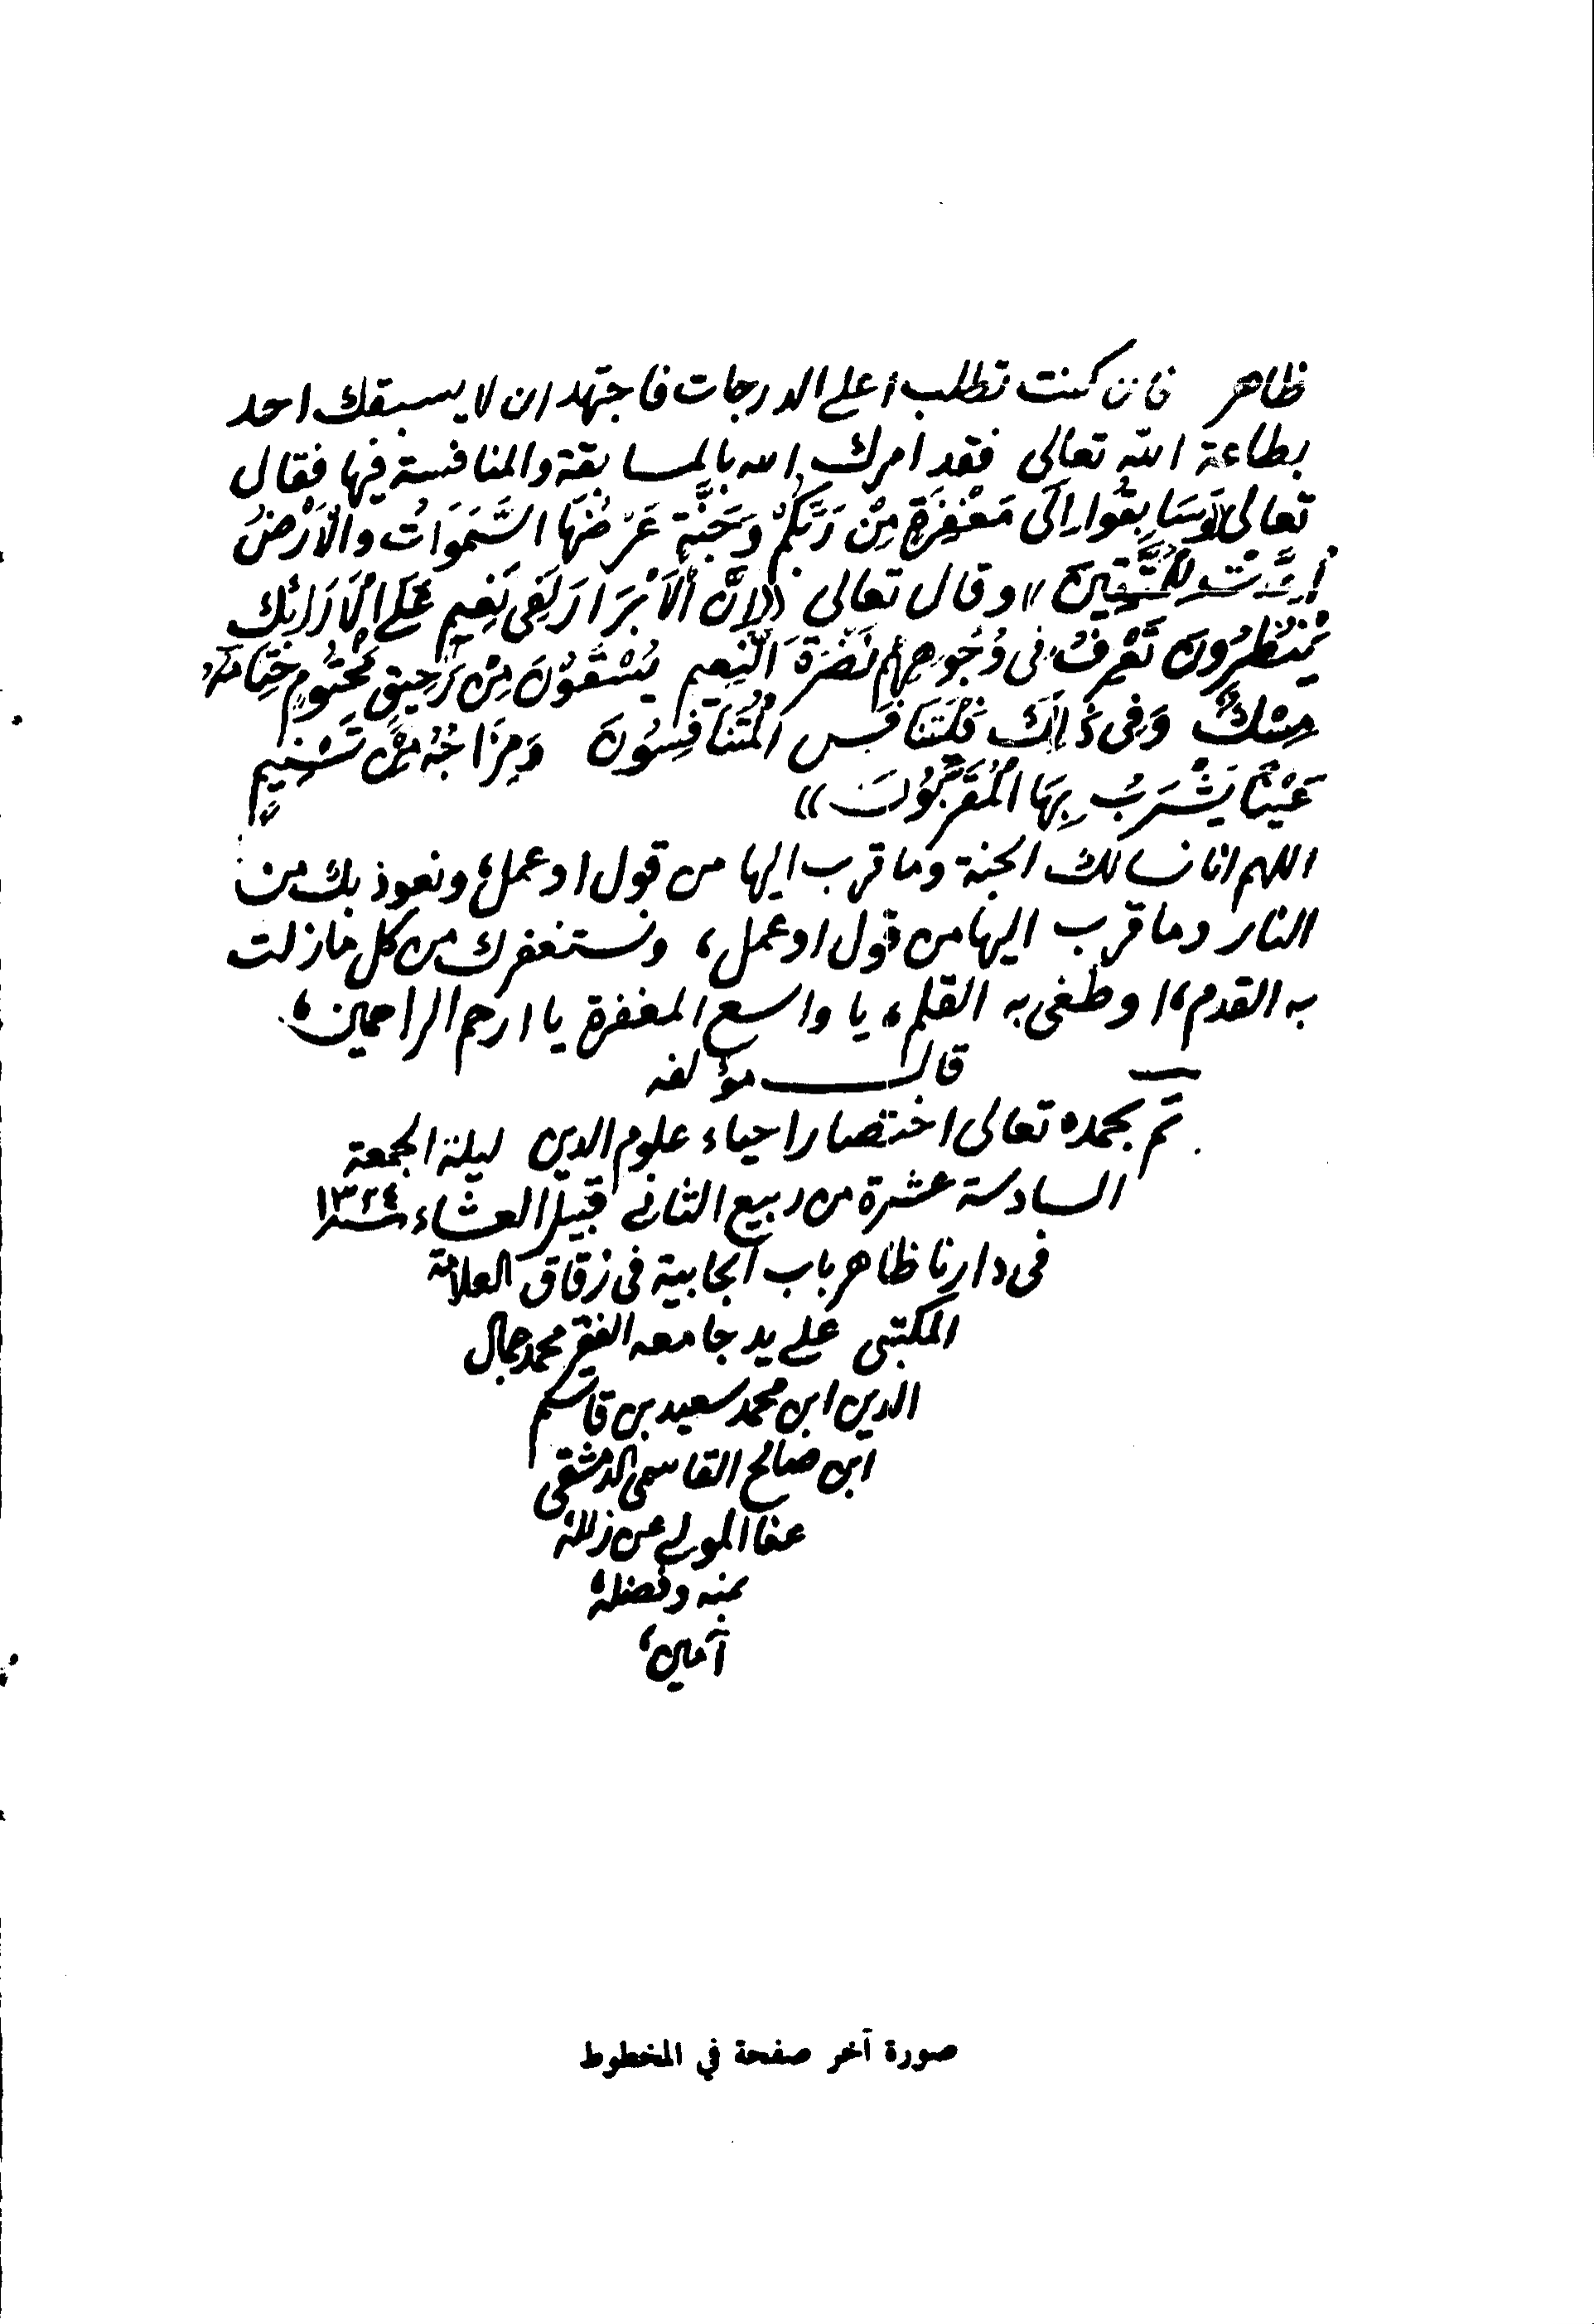 ظاهر فان كنت تطلب اعلى الدرجات فاجتهد ان لا يسبقك احد
بطاعة الله تعالى فقد امرك الله بالمسابقة والمنافسة فيها فقال
تعالى «وَسَابِقُوا اِلَى مَغْفِرَةٍ مِنْ رَبِّكُمْ وَجَنَّةٍ عَرْضُهَا السَّمَوَاتُ والْاَرْضُ
أُعِدَّتْ لِلْمُتَّقِينَ» وقال تعالى «اِنَّ الْاَبْرَارَ لَفِى نَعِيمٍ عَلَى الْاَرَائِكِ
يَنْظُرُونَ تَعْرِفُ فى وُجُوهِهِمْ نَضْرَةَ النَّعِيمِ يُسْقَوْنَ مِنْ رَحِيقٍ مَخْتُومٍ خِتَامُهُ
مِسْكٌ وَفِى ذَلِكَ فَلْيَتَنَافَسِ الْمُتَنَافِسُونَ وَمِزَاجُهُ مِنْ تَسْنِيمٍ
عَيْنًا يَشْرَبُ بِهَا الْمُقَرَّبُونَ»
اللهم انا نسالك الجنة وما قرب اليها من قول او عمل، ونعوذ بك من
النار وما قرب اليها من قول او عمل، ونستغفرك من كل ما زلت
به القدم، او طغى به القلم، يا واسع المغفرة يا ارحم الراحمين،
قال مؤلفه
تم بحمده تعالى اختصار احياء علوم الدين ليلة الجمعة
السادسة عشرة من ربيع الثانى قبيل العشاء سنة ١٣٢٤
فى دارنا ظاهر باب الجابية فى زقاق العلامة
المكتبى على يد جامعه الفقير محمد جمال
الدين ابن محمد سعيد بن قاسم
ابن صالح القاسمى الدمشقى
عفا المولى عن زلله
بمنه وفضله
آمين،
صورة آخر صفحة في المخطوط